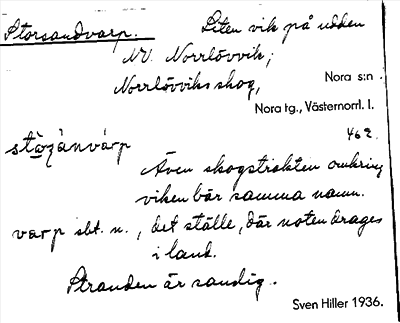 Storsandvarp. Liten vik på udden
NV. Norrlövvik;
Norrlövviks skog,
Nora s:n
Nora tg., Västernorrl. l.
462.
Även skogstrakten omkring
viken bär samma namn.
varp sbt. n., det ställe, där noten drages
i land.
Stranden är sandig.
Sven Hiller 1936.